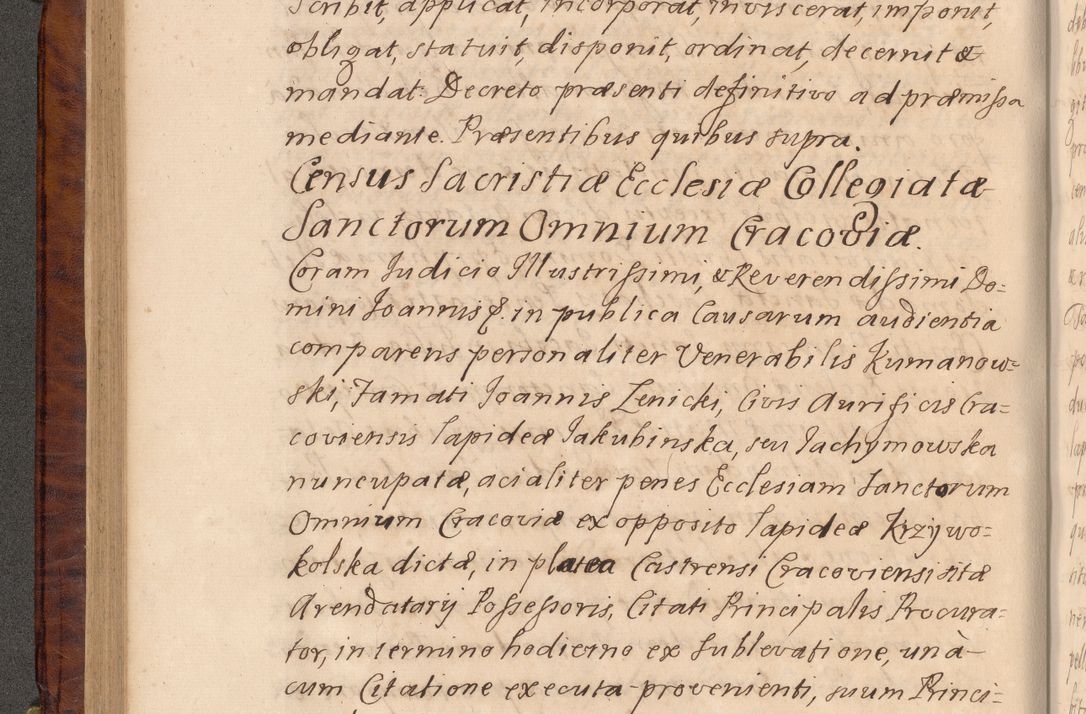 scribit, applicat, incorporat, inviscerat, imponit,
obligat, statuit, disponit, ordinat, decernit &
mandat. Decreto præsenti definitivo ad præmissa
mediante. Præsentibus quibus supra.
Census Sacristiæ Ecclesiæ Collegiatæ
Sanctorum Omnium Cracoviæ.
Coram Judicio Illustrissimi, & Reverendissimi Do=
mini Joannis &. in publica Causarum audientia
comparens personaliter Venerabilis Kumanow=
ski, Famati Joannis Zenicki, Civis Aurificis Cra=
coviensis lapideæ Jakubinska, seu Jachymowska
nuncupatæ, acialiter penes Ecclesiam Sanctorum
Omnium Cracoviæ ex opposito lapideæ Krzywo=
kolska dictæ, in platea Castrensi Cracoviensi sitæ
Arendatarij Possessoris, Citati Principalis Procura=
tor, in termino hodierno ex sublevatione, unà
cum Citatione executa provenienti, suum Princi=